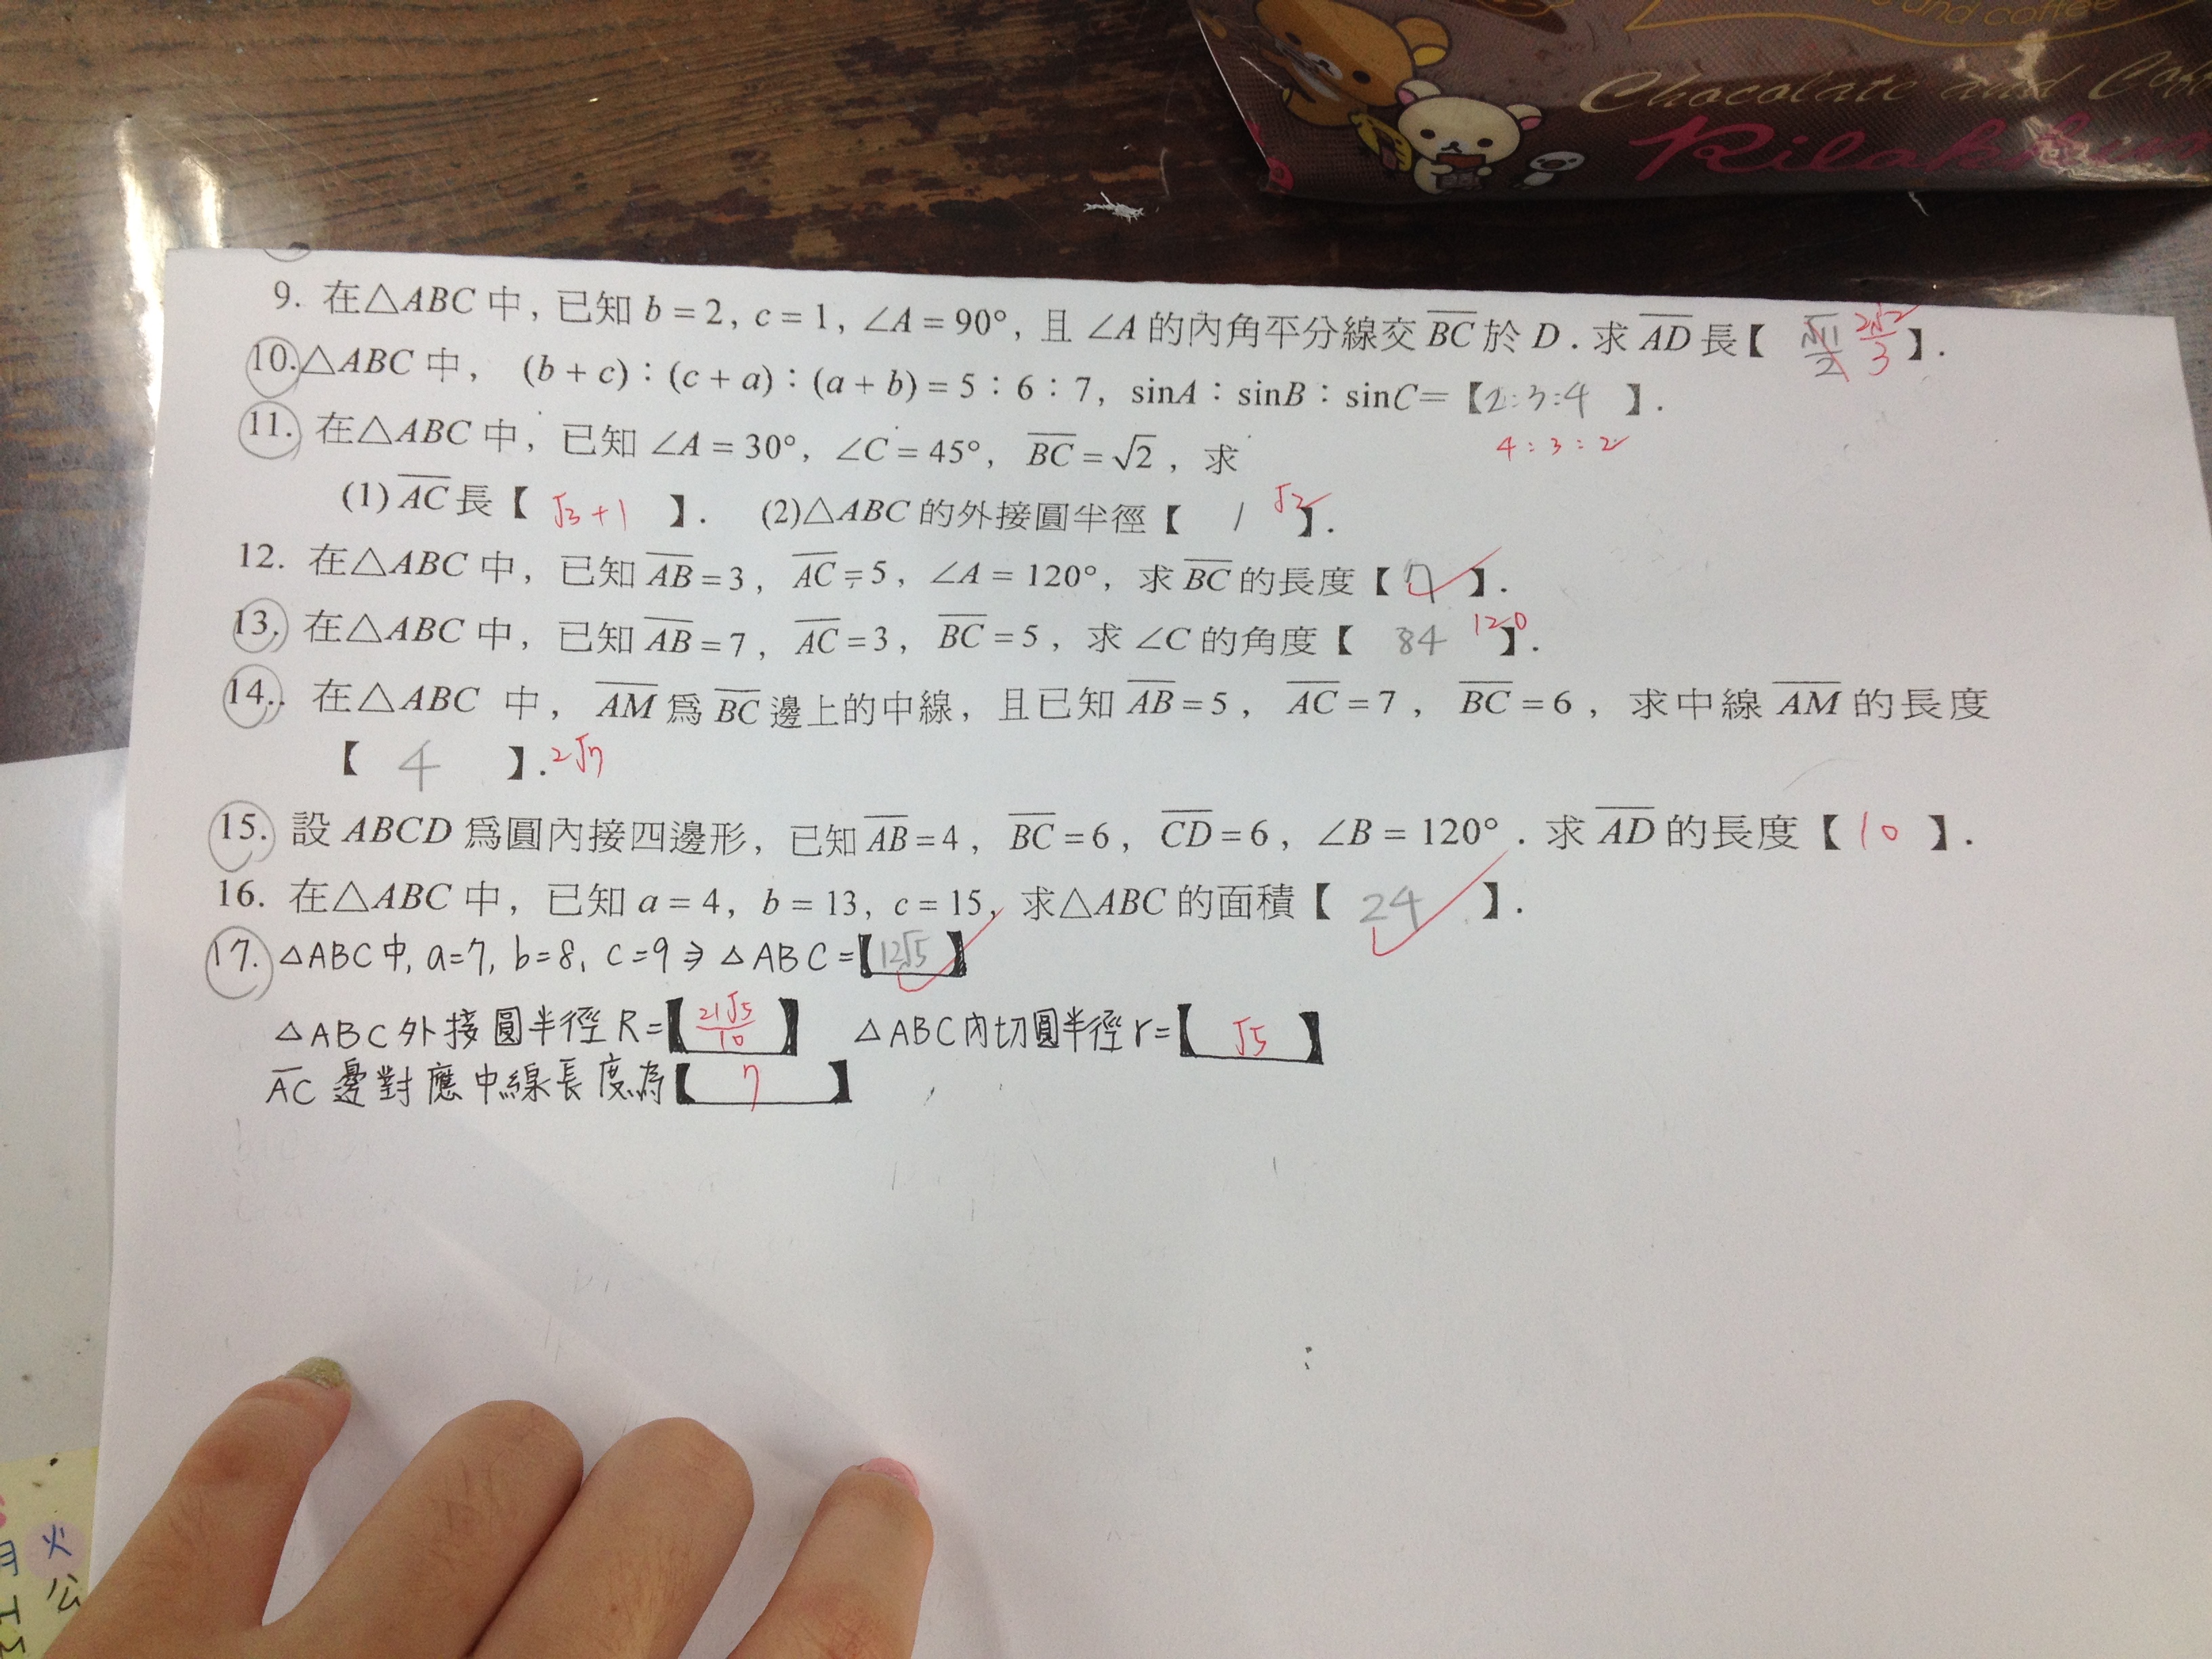 and coffee
Chocolate and Cof
Rilakkum
9. 在△ABC 中, 已知 b = 2, c = 1, ∠A = 90°, 且 ∠A 的內角平分線交 BC 於 D . 求 AD 長【 √11/2 2√2/3 】.
10. △ABC 中, (b + c) : (c + a) : (a + b) = 5 : 6 : 7, sinA : sinB : sinC= 【2:3:4 】.
4 : 3 : 2
11. 在△ABC 中, 已知 ∠A = 30°, ∠C = 45°, BC = √2 , 求
(1) AC 長【 √3+1 】. (2)△ABC 的外接圓半徑【 1 √2 】.
12. 在△ABC 中, 已知 AB = 3, AC = 5, ∠A = 120°, 求 BC 的長度【 7 】.
13. 在△ABC 中, 已知 AB = 7, AC = 3, BC = 5, 求 ∠C 的角度【 84 120 】.
14.. 在△ABC 中, AM 爲 BC 邊上的中線, 且已知 AB = 5, AC = 7, BC = 6, 求中線 AM 的長度
【 4 】. 2√7
15. 設 ABCD 爲圓內接四邊形, 已知 AB = 4, BC = 6, CD = 6, ∠B = 120° . 求 AD 的長度【 10 】.
16. 在△ABC 中, 已知 a = 4, b = 13, c = 15, 求△ABC 的面積【 24 】.
17. △ABC中, a=7, b=8, c=9 ⇒ △ABC =【12√5】
△ABC外接圓半徑R=【21√5/10】 △ABC內切圓半徑r=【 √5 】
AC 邊對應中線長度為【 7 】
火
月
公
工